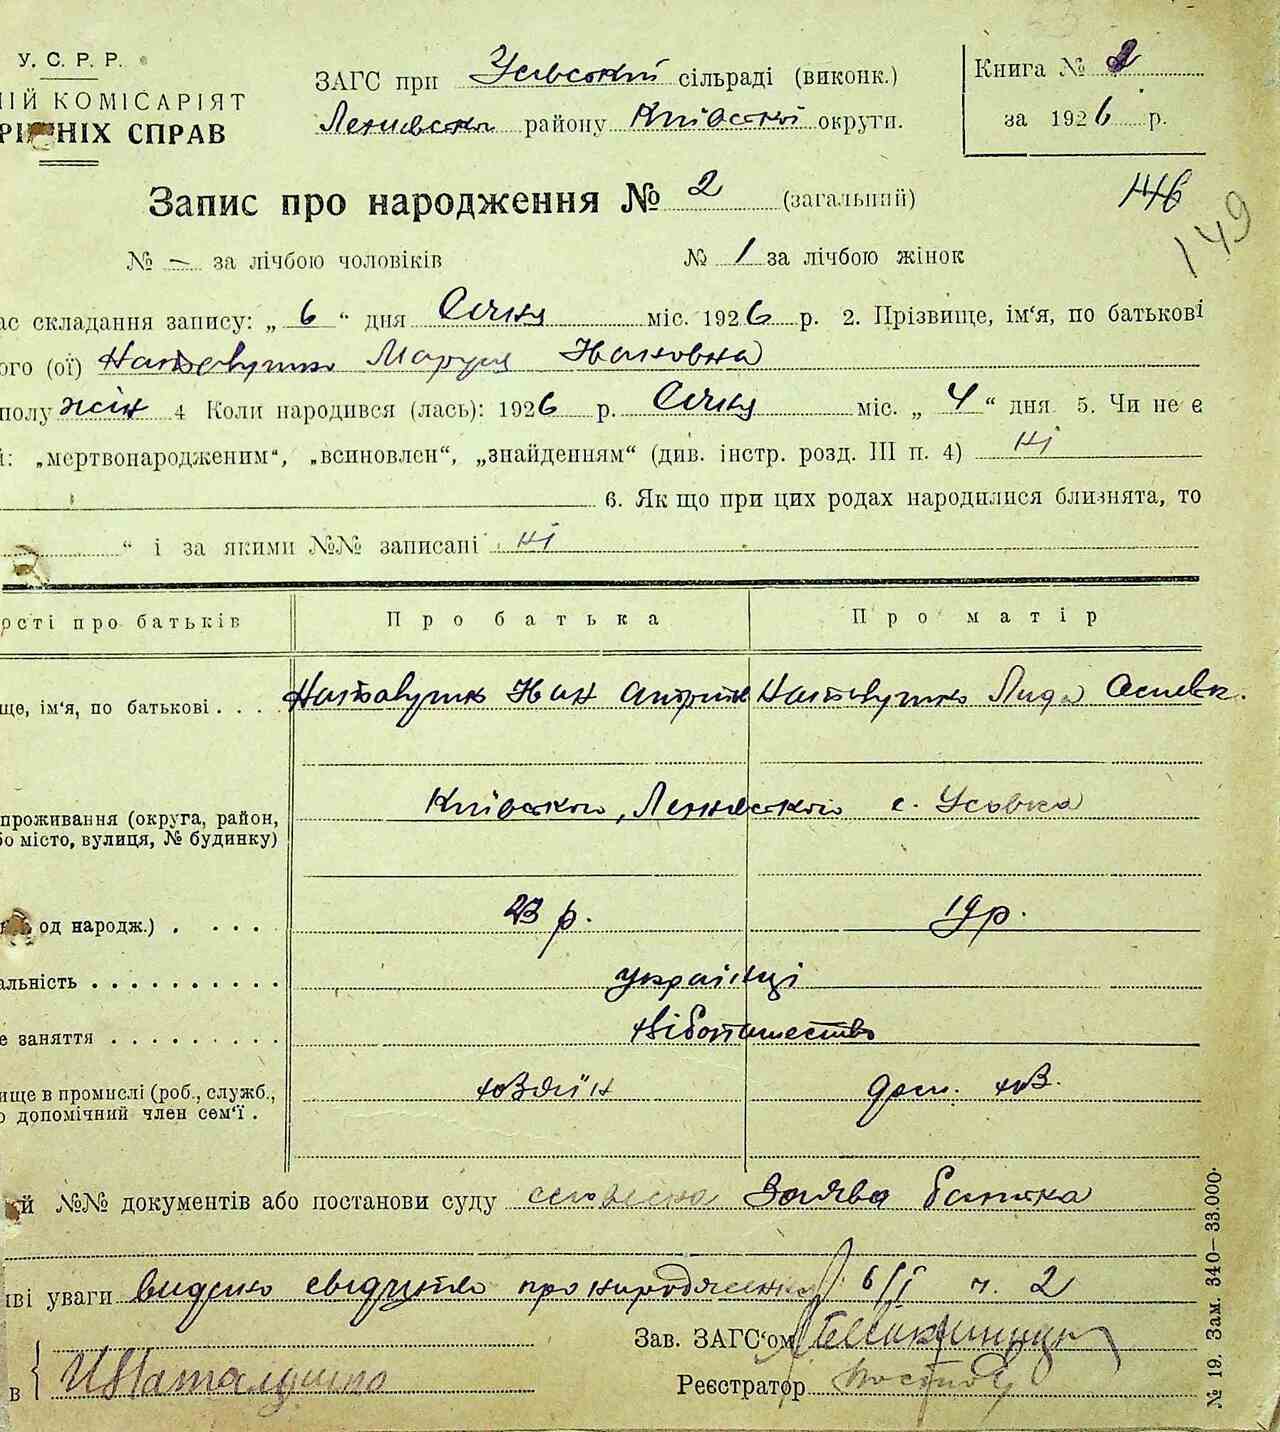 У. С. Р. Р.
ІЙ КОМІСАРІЯТ
СПРАВ
ЗАГС при Усівський сільраді (виконк.)
району Київської округи.
Книга № 2
за 1926 р.
Запис про народження № 2 (загальний)
146
149
№ – за лічбою чоловіків № 1 за лічбою жінок
ас складання запису: „ 6 “ дня Січня міс. 1926 р. 2. Прізвище, ім‘я, по батькові
ого (ої) Маруся Ивановна
полу жін 4 Коли народився (лась): 1926 р. Січня міс. „ 4 “ дня 5. Чи не є
й: „мертвонародженим“, „всиновлен“, „знайденням“ (див. інстр. розд. III п. 4) ні
6. Як що при цих родах народилися близнята, то
“ і за якими №№ записані ні
ості про батьків Про батька Про матір
ще, ім‘я, по батькові . . . . Иван Лида
проживання (округа, район,
бо місто, вулиця, № будинку)
Київського, с. Усовка
од народж.) . . . . 23 р. 19 р.
альність . . . . . . . . . . українці
е заняття . . . . . . . . . хліборобство
ище в промислі (роб., служб.,
о допомічний член сем‘ї .
хозяїн дом. хоз.
й №№ документів або постанови суду словесна Заява батька
іві уваги видано про народження 6/I ч. 2
Зав. ЗАГС‘ом
в {
Реєстратор
№ 19. Зам. 340—33.000.